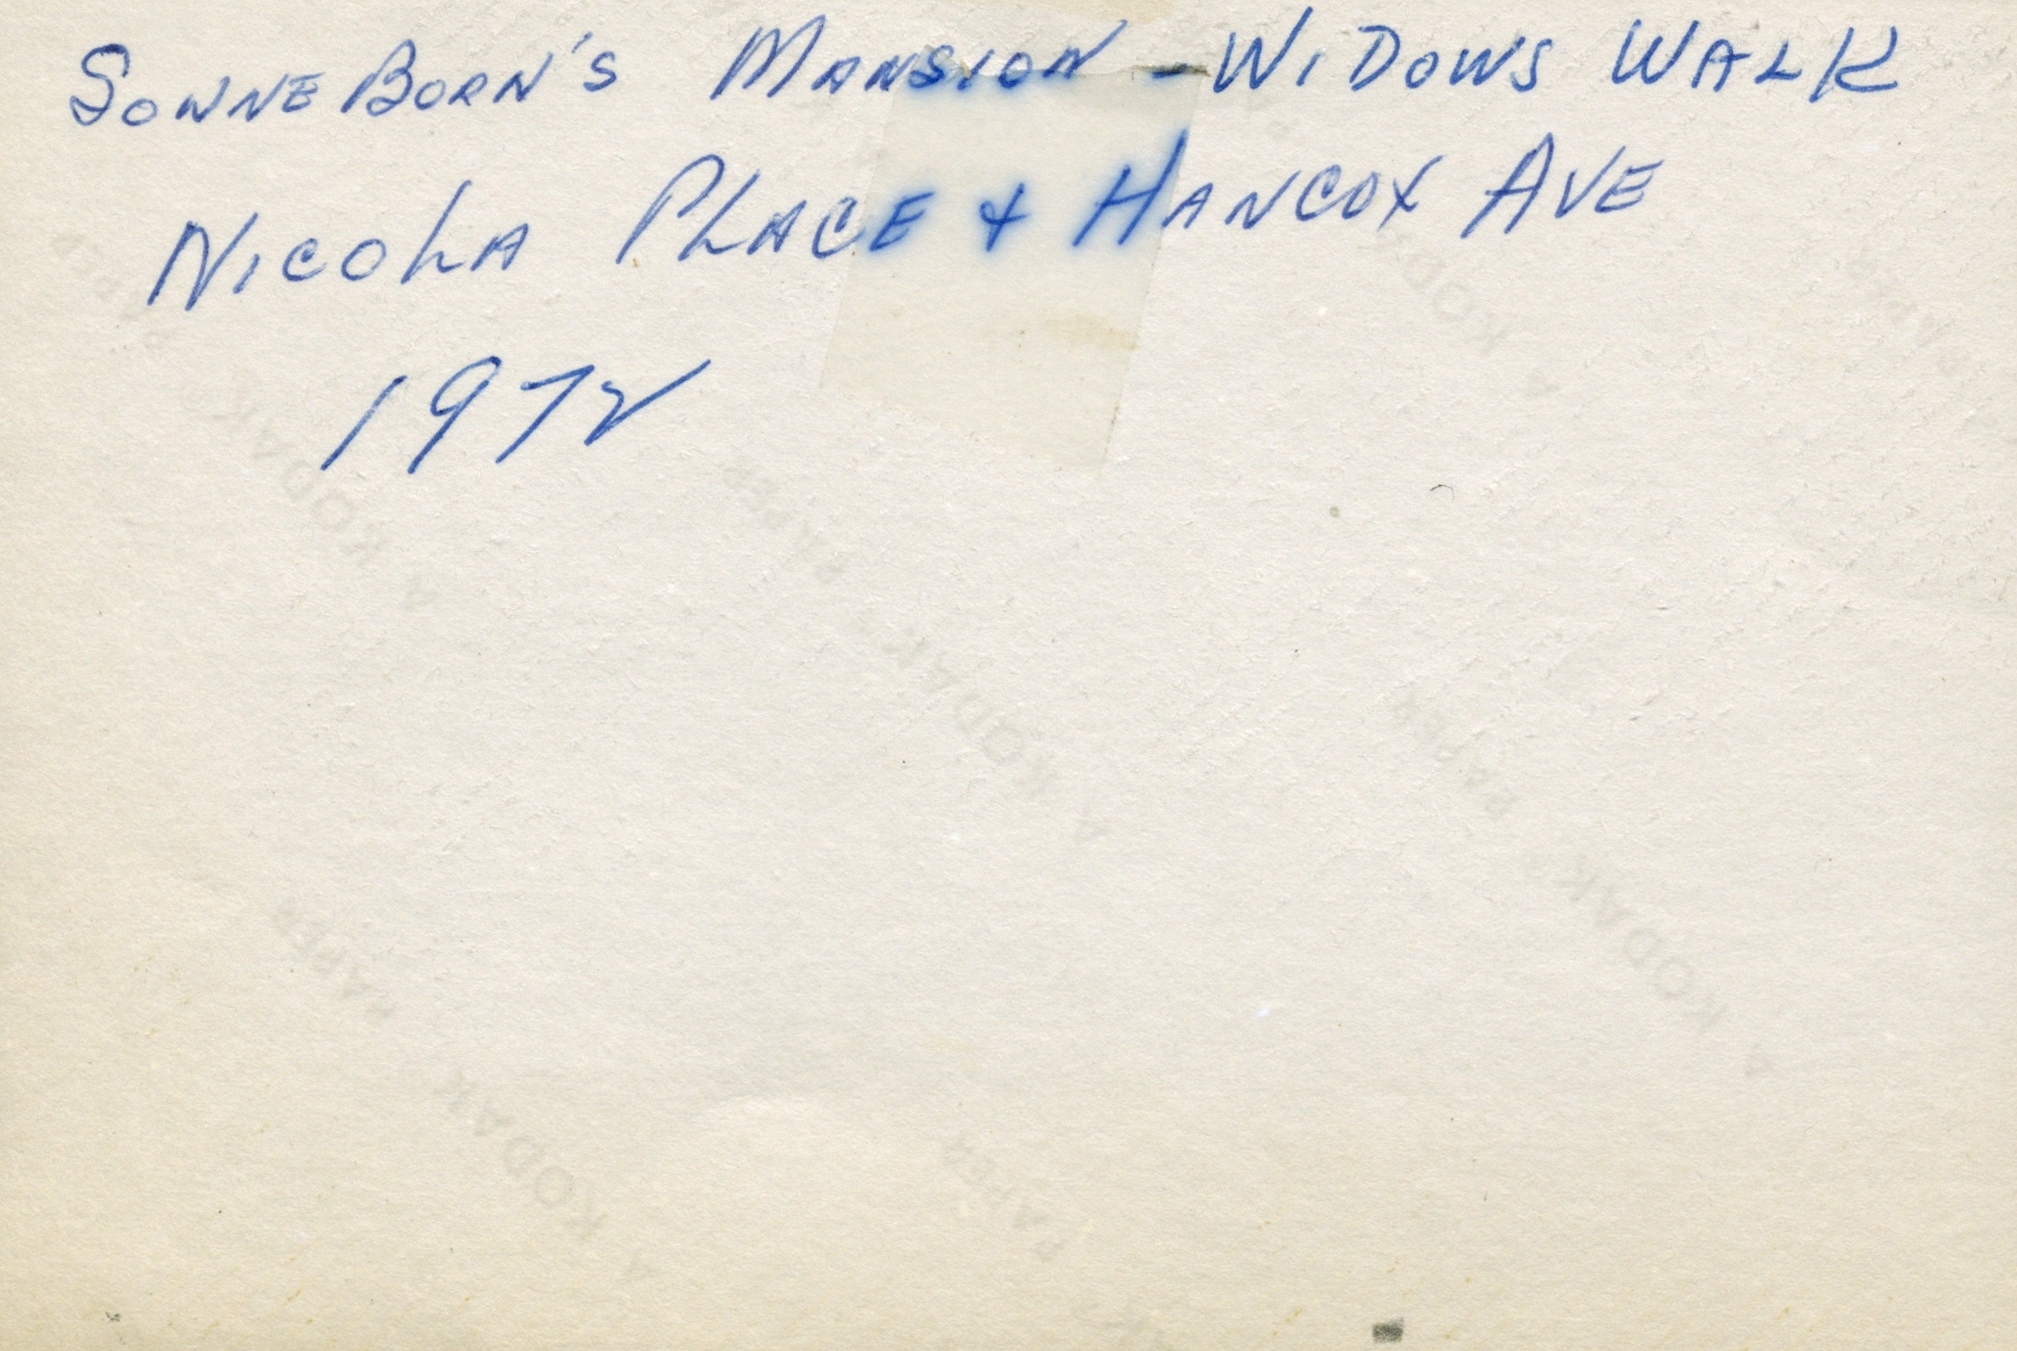 SONNEBORN'S MANSION - WIDOWS WALK
NICOLA PLACE & HANCOX AVE
1972
A KODAK PAPER
A KODAK PAPER
A KODAK PAPER
A KODAK PAPER
A KODAK
PAPER
PAPER